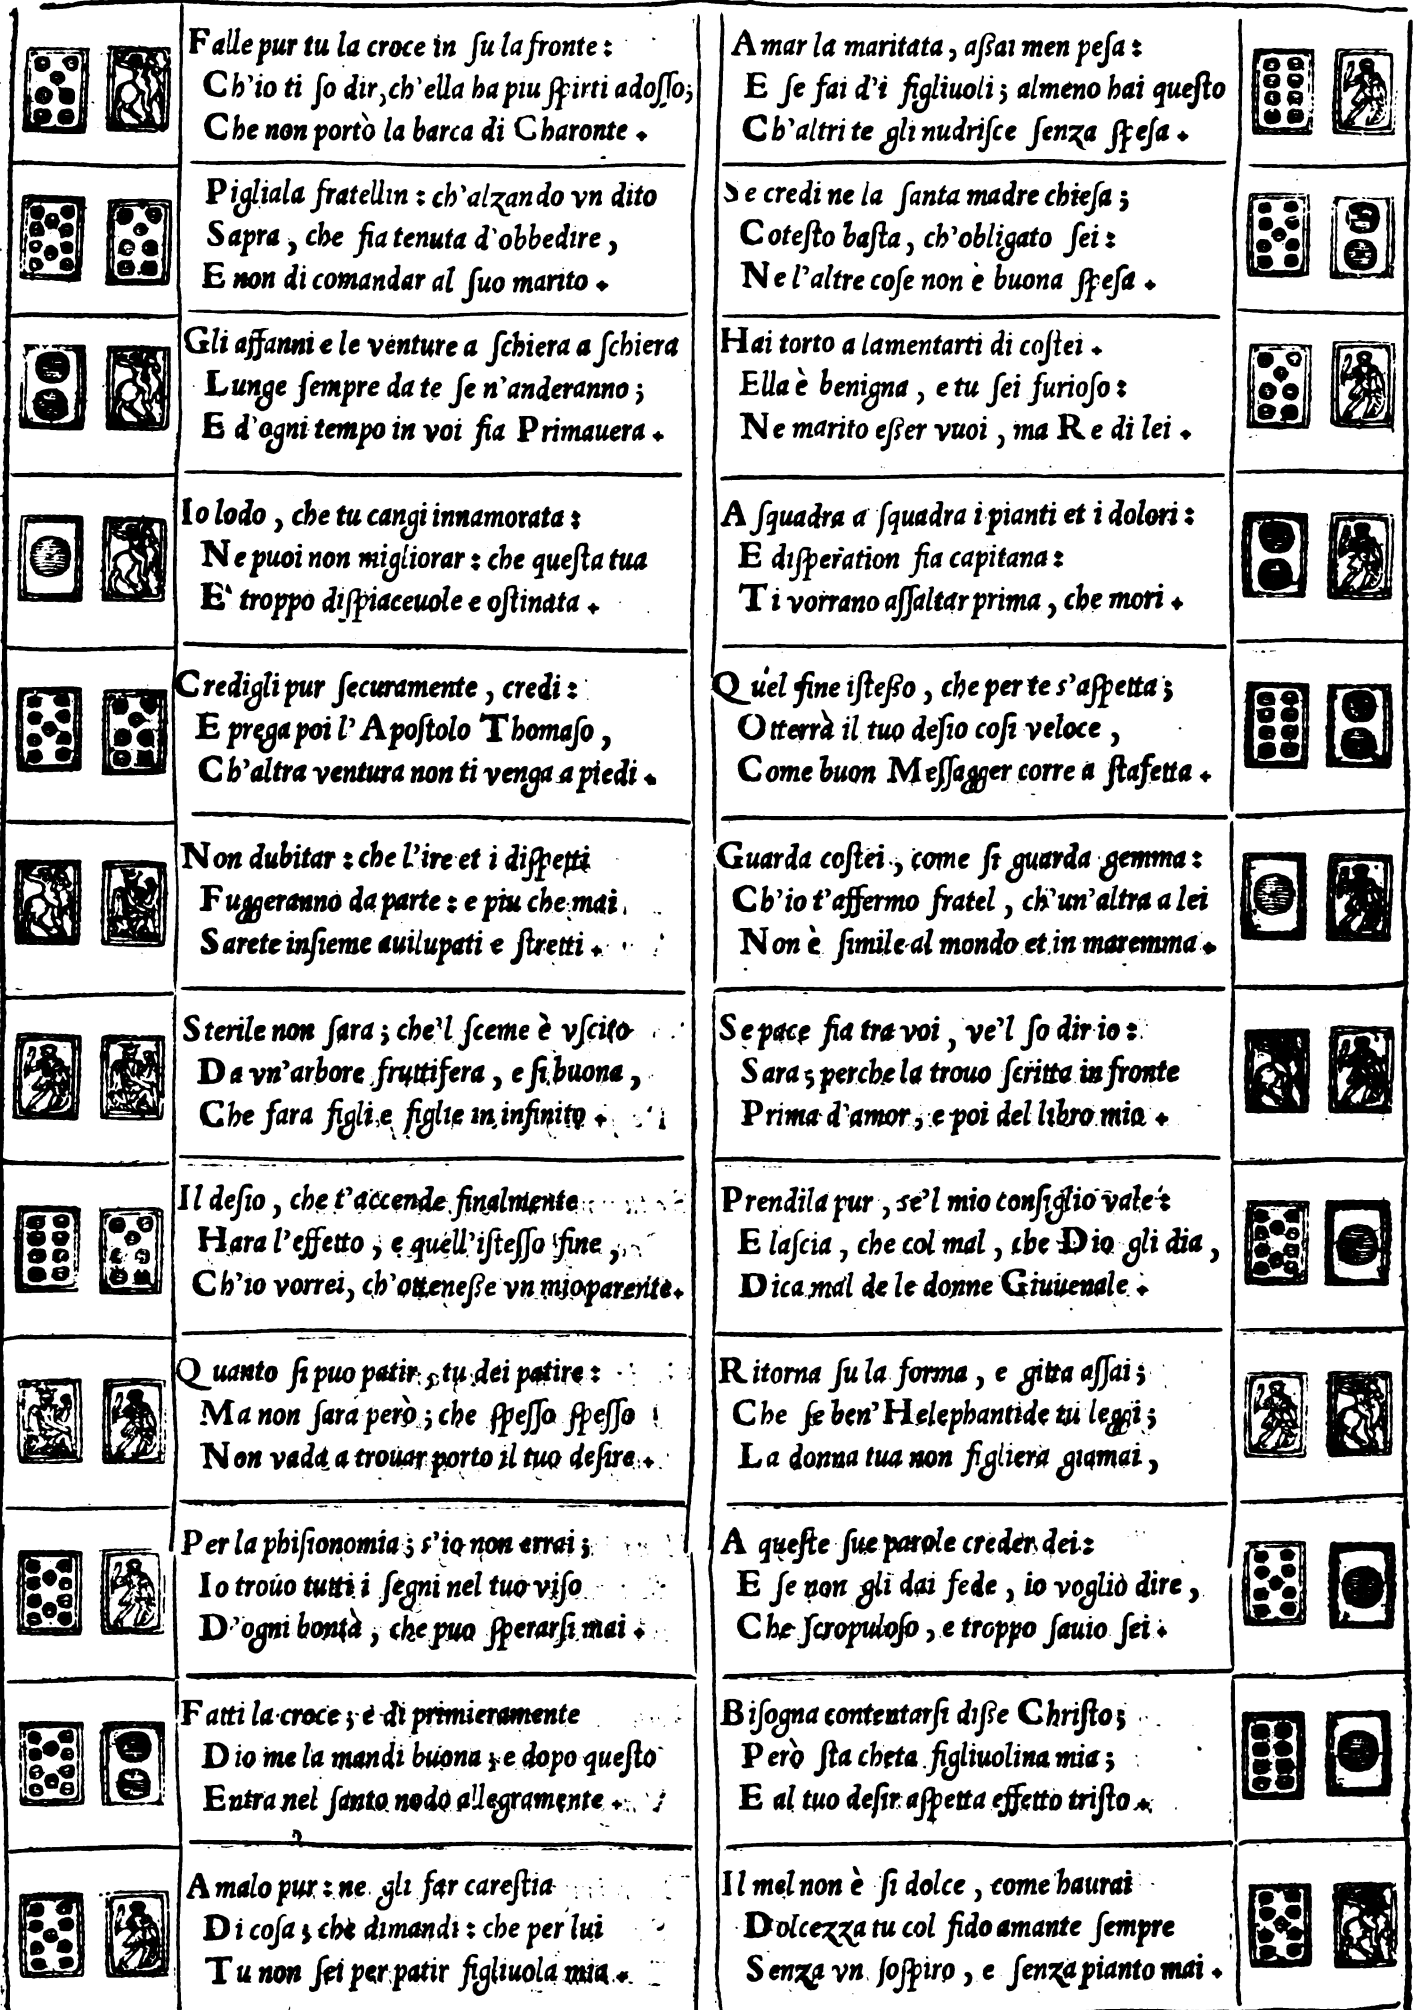 Falle pur tu la croce in ſu la fronte:
Ch'io ti ſo dir, ch'ella ha piu ſpirti adoſſo;
Che non portò la barca di Charonte.
Pigliala fratellin: ch'alzando vn dito
Sapra, che fia tenuta d'obbedire,
E non di comandar al ſuo marito.
Gli affanni e le venture a ſchiera a ſchiera
Lunge ſempre da te ſe n'anderanno;
E d'ogni tempo in voi fia Primauera.
Io lodo, che tu cangi innamorata:
Ne puoi non migliorar: che queſta tua
E' troppo diſpiaceuole e oſtinata.
Credigli pur ſecuramente, credi:
E prega poi l'Apoſtolo Thomaſo,
Ch'altra ventura non ti venga a piedi.
Non dubitar: che l'ire et i diſpetti
Fuggeranno da parte: e piu che mai
Sarete inſieme auilupati e ſtretti.
Sterile non ſara; che'l ſceme è vſcito
Da vn'arbore fruttifera, e ſi buona,
Che fara figli e figlie in infinito.
Il deſio, che t'accende finalmente
Hara l'effetto, e quell'iſteſſo fine,
Ch'io vorrei, ch'otteneſſe vn mio parente.
Quanto ſi puo patir, tu dei patire:
Ma non ſara però; che ſpeſſo ſpeſſo
Non vada a trouar porto il tuo deſire.
Per la phiſionomia; s'io non errai;
Io trouo tutti i ſegni nel tuo viſo
D'ogni bontà, che puo ſperarſi mai.
Fatti la croce; e di primieramente
Dio me la mandi buona; e dopo queſto
Entra nel ſanto nodo allegramente.
Amalo pur: ne gli far careſtia
Di coſa; che dimandi: che per lui
Tu non ſei per patir figliuola mia.
Amar la maritata, aſſai men peſa:
E ſe fai d'i figliuoli; almeno hai queſto
Ch'altri te gli nudriſce ſenza ſpeſa.
Se credi ne la ſanta madre chieſa;
Coteſto baſta, ch'obligato ſei:
Ne l'altre coſe non è buona ſpeſa.
Hai torto a lamentarti di coſtei.
Ella è benigna, e tu ſei furioſo:
Ne marito eſſer vuoi, ma Re di lei.
A ſquadra a ſquadra i pianti et i dolori:
E diſperation fia capitana:
Ti vorrano aſſaltar prima, che mori.
Quel fine iſteſſo, che per te s'aſpetta;
Otterrà il tuo deſio coſi veloce,
Come buon Meſſagger corre a ſtafetta.
Guarda coſtei, come ſi guarda gemma:
Ch'io t'affermo fratel, ch'un'altra a lei
Non è ſimile al mondo et in maremma.
Se pace fia tra voi, ve'l ſo dir io:
Sara; perche la trouo ſcritta in fronte
Prima d'amor, e poi del libro mio.
Prendila pur, se'l mio conſiglio vale:
E laſcia, che col mal, che Dio gli dia,
Dica mal de le donne Giuuenale.
Ritorna ſu la forma, e gitta aſſai;
Che ſe ben'Helephantide tu leggi;
La donna tua non figliera giamai,
A queſte ſue parole creder dei:
E ſe non gli dai fede, io voglio dire,
Che ſcropuloſo, e troppo ſauio ſei.
Biſogna contentarſi diſſe Chriſto;
Però ſta cheta figliuolina mia;
E al tuo deſir aſpetta effetto triſto.
Il mel non è ſi dolce, come haurai
Dolcezza tu col fido amante ſempre
Senza vn ſoſpiro, e ſenza pianto mai.